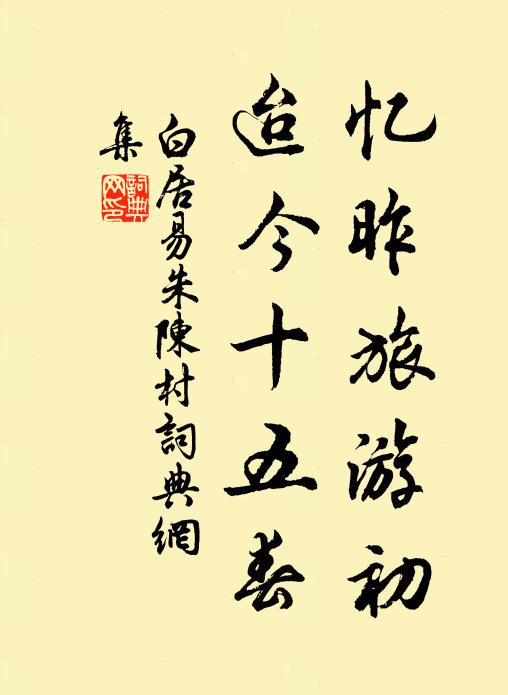 忆昨旅游初
迨今十五春
白居易朱陳村詞典網
集
詞典
网印